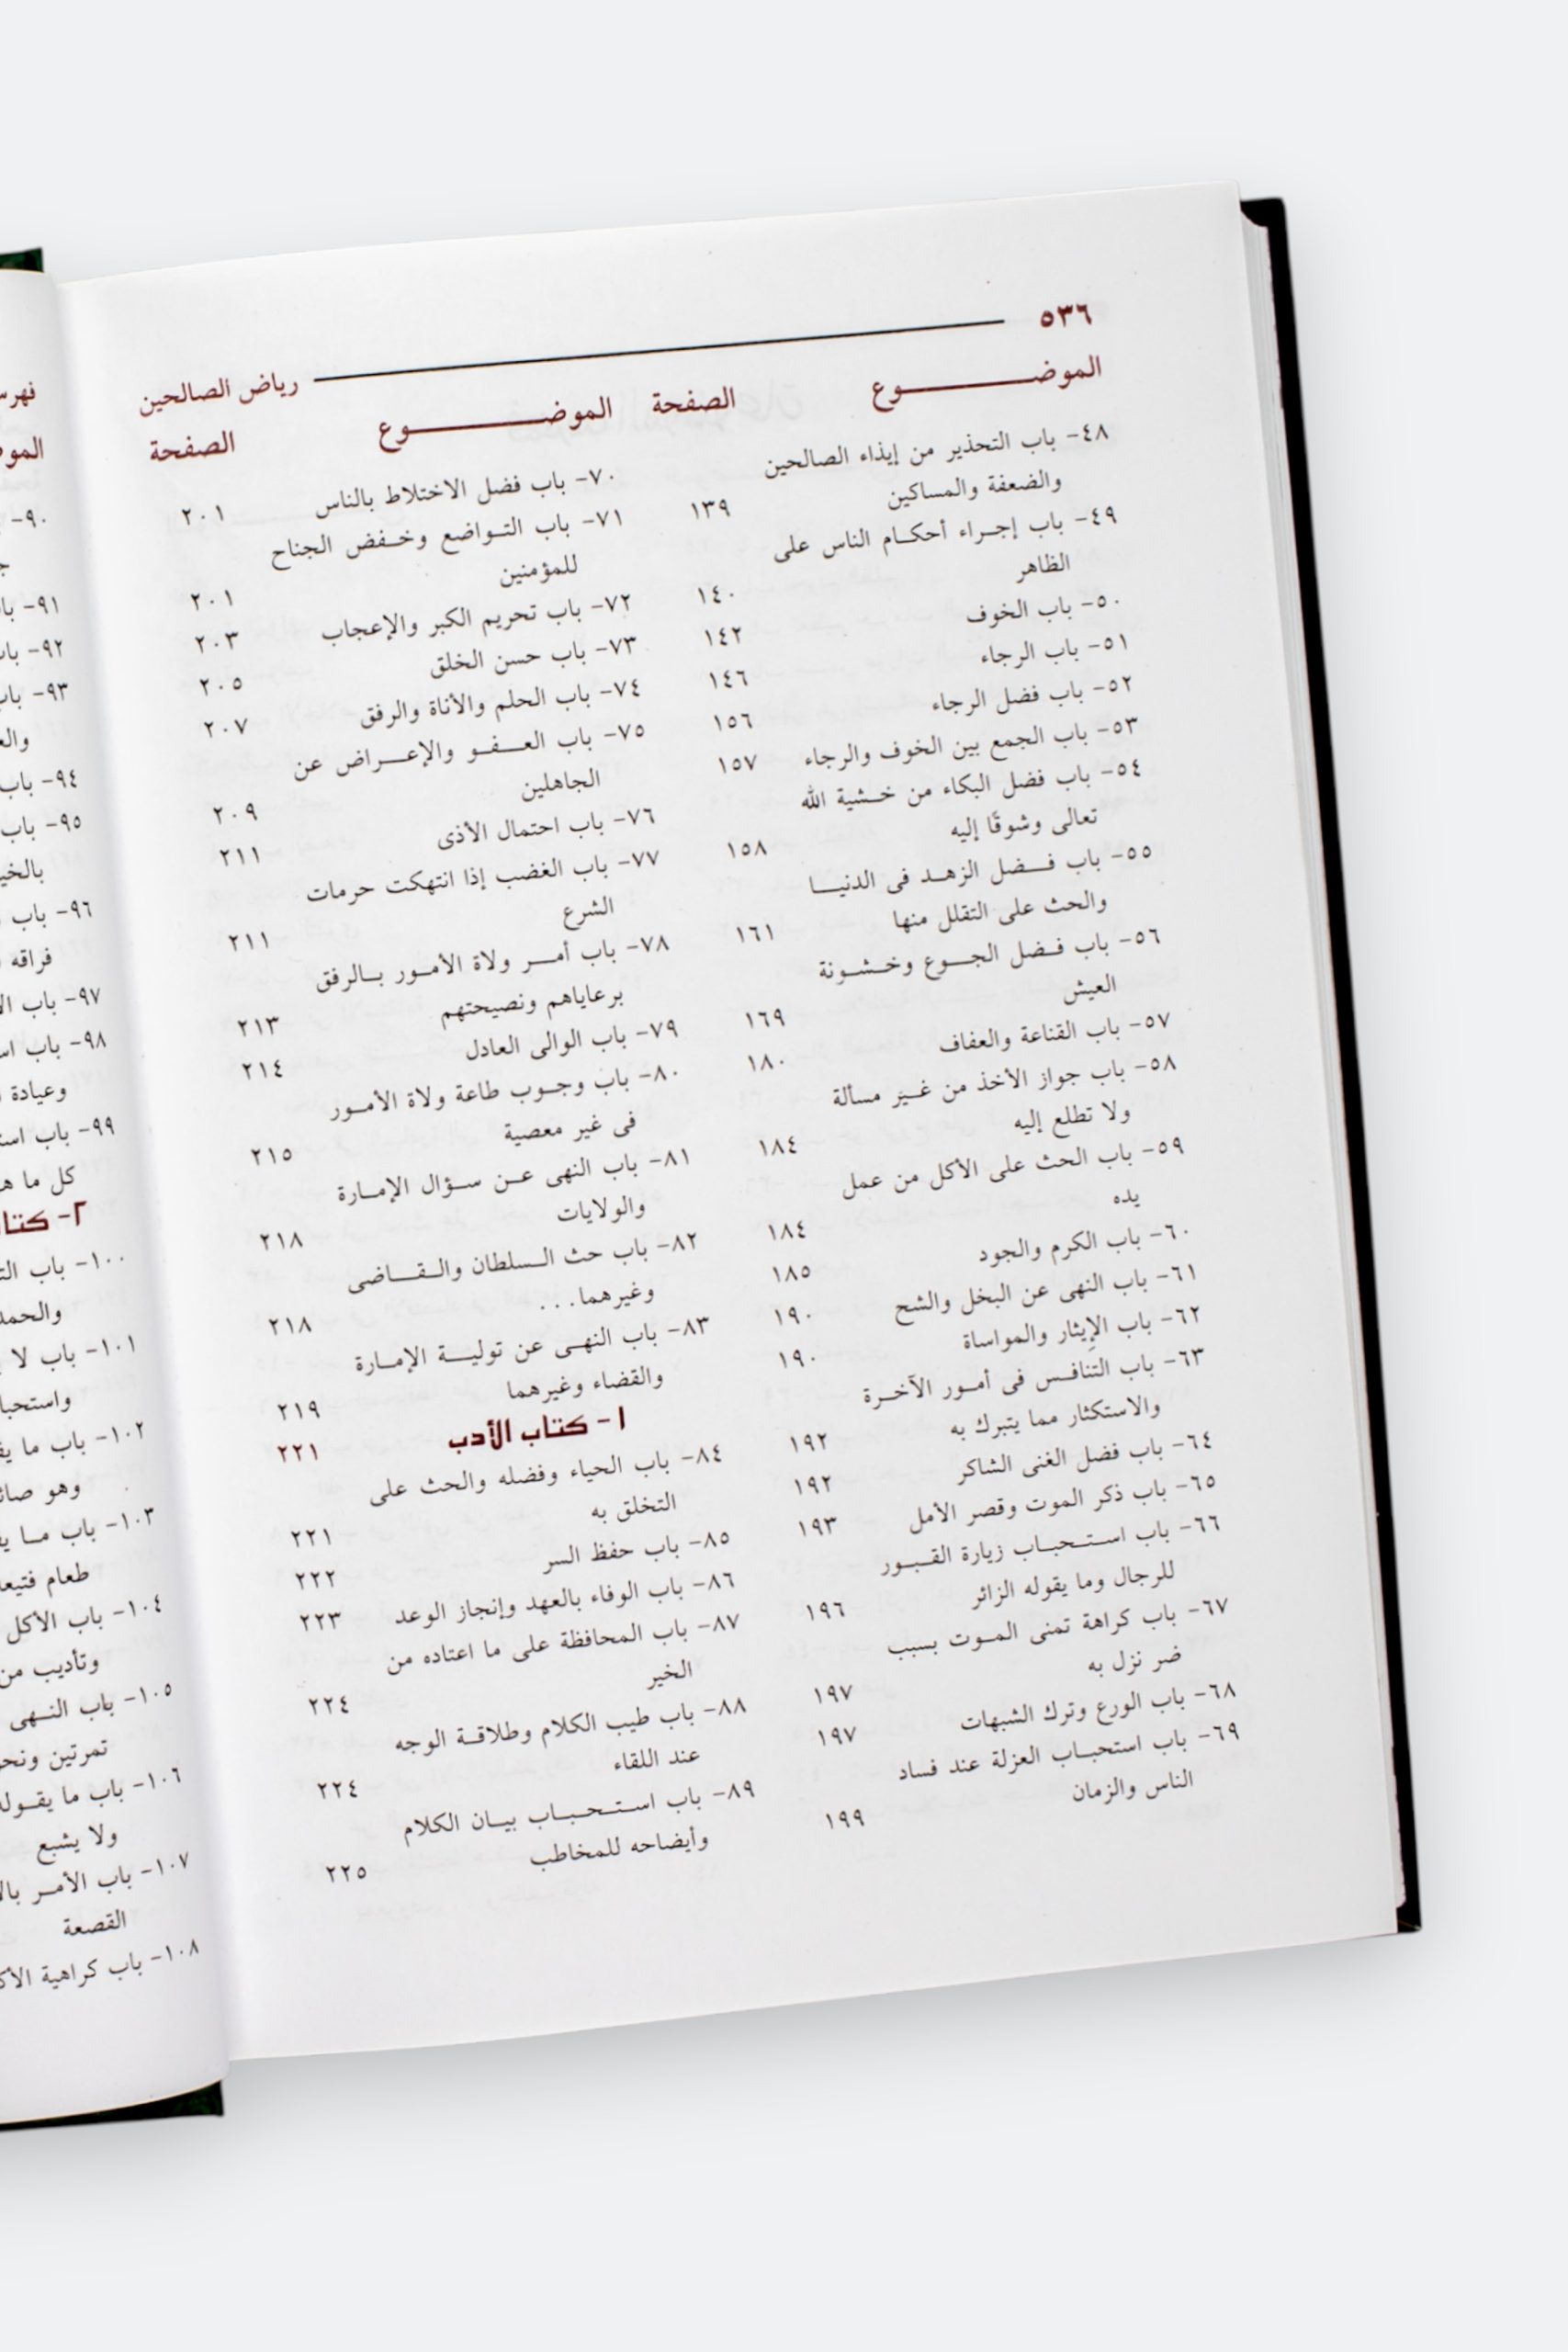 ٥٣٦
رياض الصالحين
الموضـــــــــوع الصفحة
٤٨- باب التحذير من إيذاء الصالحين
والضعفة والمساكين ١٣٩
٤٩- باب إجراء أحكام الناس على
الظاهر ١٤٠
٥٠- باب الخوف ١٤٢
٥١- باب الرجاء ١٤٦
٥٢- باب فضل الرجاء ١٥٦
٥٣- باب الجمع بين الخوف والرجاء ١٥٧
٥٤- باب فضل البكاء من خشية الله
تعالى وشوقًا إليه ١٥٨
٥٥- باب فضل الزهد فى الدنيا
والحث على التقلل منها ١٦١
٥٦- باب فضل الجوع وخشونة
العيش ١٦٩
٥٧- باب القناعة والعفاف ١٨٠
٥٨- باب جواز الأخذ من غير مسألة
ولا تطلع إليه ١٨٤
٥٩- باب الحث على الأكل من عمل
يده ١٨٤
٦٠- باب الكرم والجود ١٨٥
٦١- باب النهى عن البخل والشح ١٩٠
٦٢- باب الإِيثار والمواساة ١٩٠
٦٣- باب التنافس فى أمور الآخرة
والاستكثار مما يتبرك به ١٩٢
٦٤- باب فضل الغنى الشاكر ١٩٢
٦٥- باب ذكر الموت وقصر الأمل ١٩٣
٦٦- باب استحباب زيارة القبور
للرجال وما يقوله الزائر ١٩٦
٦٧- باب كراهة تمنى الموت بسبب
ضر نزل به ١٩٧
٦٨- باب الورع وترك الشبهات ١٩٧
٦٩- باب استحباب العزلة عند فساد
الناس والزمان ١٩٩
الموضـــــــــوع الصفحة
٧٠- باب فضل الاختلاط بالناس ٢٠١
٧١- باب التواضع وخفض الجناح
للمؤمنين ٢٠١
٧٢- باب تحريم الكبر والإعجاب ٢٠٣
٧٣- باب حسن الخلق ٢٠٥
٧٤- باب الحلم والأناة والرفق ٢٠٧
٧٥- باب العفو والإعراض عن
الجاهلين ٢٠٩
٧٦- باب احتمال الأذى ٢١١
٧٧- باب الغضب إذا انتهكت حرمات
الشرع ٢١١
٧٨- باب أمر ولاة الأمور بالرفق
برعاياهم ونصيحتهم ٢١٣
٧٩- باب الوالى العادل ٢١٤
٨٠- باب وجوب طاعة ولاة الأمور
فى غير معصية ٢١٥
٨١- باب النهى عن سؤال الإمارة
والولايات ٢١٨
٨٢- باب حث السلطان والقاضى
وغيرهما... ٢١٨
٨٣- باب النهى عن تولية الإمارة
والقضاء وغيرهما ٢١٩
١- كتاب الأدب ٢٢١
٨٤- باب الحياء وفضله والحث على
التخلق به ٢٢١
٨٥- باب حفظ السر ٢٢٢
٨٦- باب الوفاء بالعهد وإنجاز الوعد ٢٢٣
٨٧- باب المحافظة على ما اعتاده من
الخير ٢٢٤
٨٨- باب طيب الكلام وطلاقة الوجه
عند اللقاء ٢٢٤
٨٩- باب استحباب بيان الكلام
وأيضاحه للمخاطب ٢٢٥
٩٠-
٩١-
٩٢-
٩٣- باب
٩٤- باب
٩٥- باب
٩٦- باب
فراقه
٩٧- باب
٩٨- باب
وعيادة
٩٩- باب
كل ما
٢-
١٠٠- باب
١٠١- باب لا
١٠٢- باب ما
وهو
١٠٣- باب ما
طعام
١٠٤- باب الأكل
وتأديب من
١٠٥- باب النهى
تمرتين
١٠٦- باب ما
ولا يشبع
١٠٧- باب الأمر
القصعة
١٠٨- باب كراهية